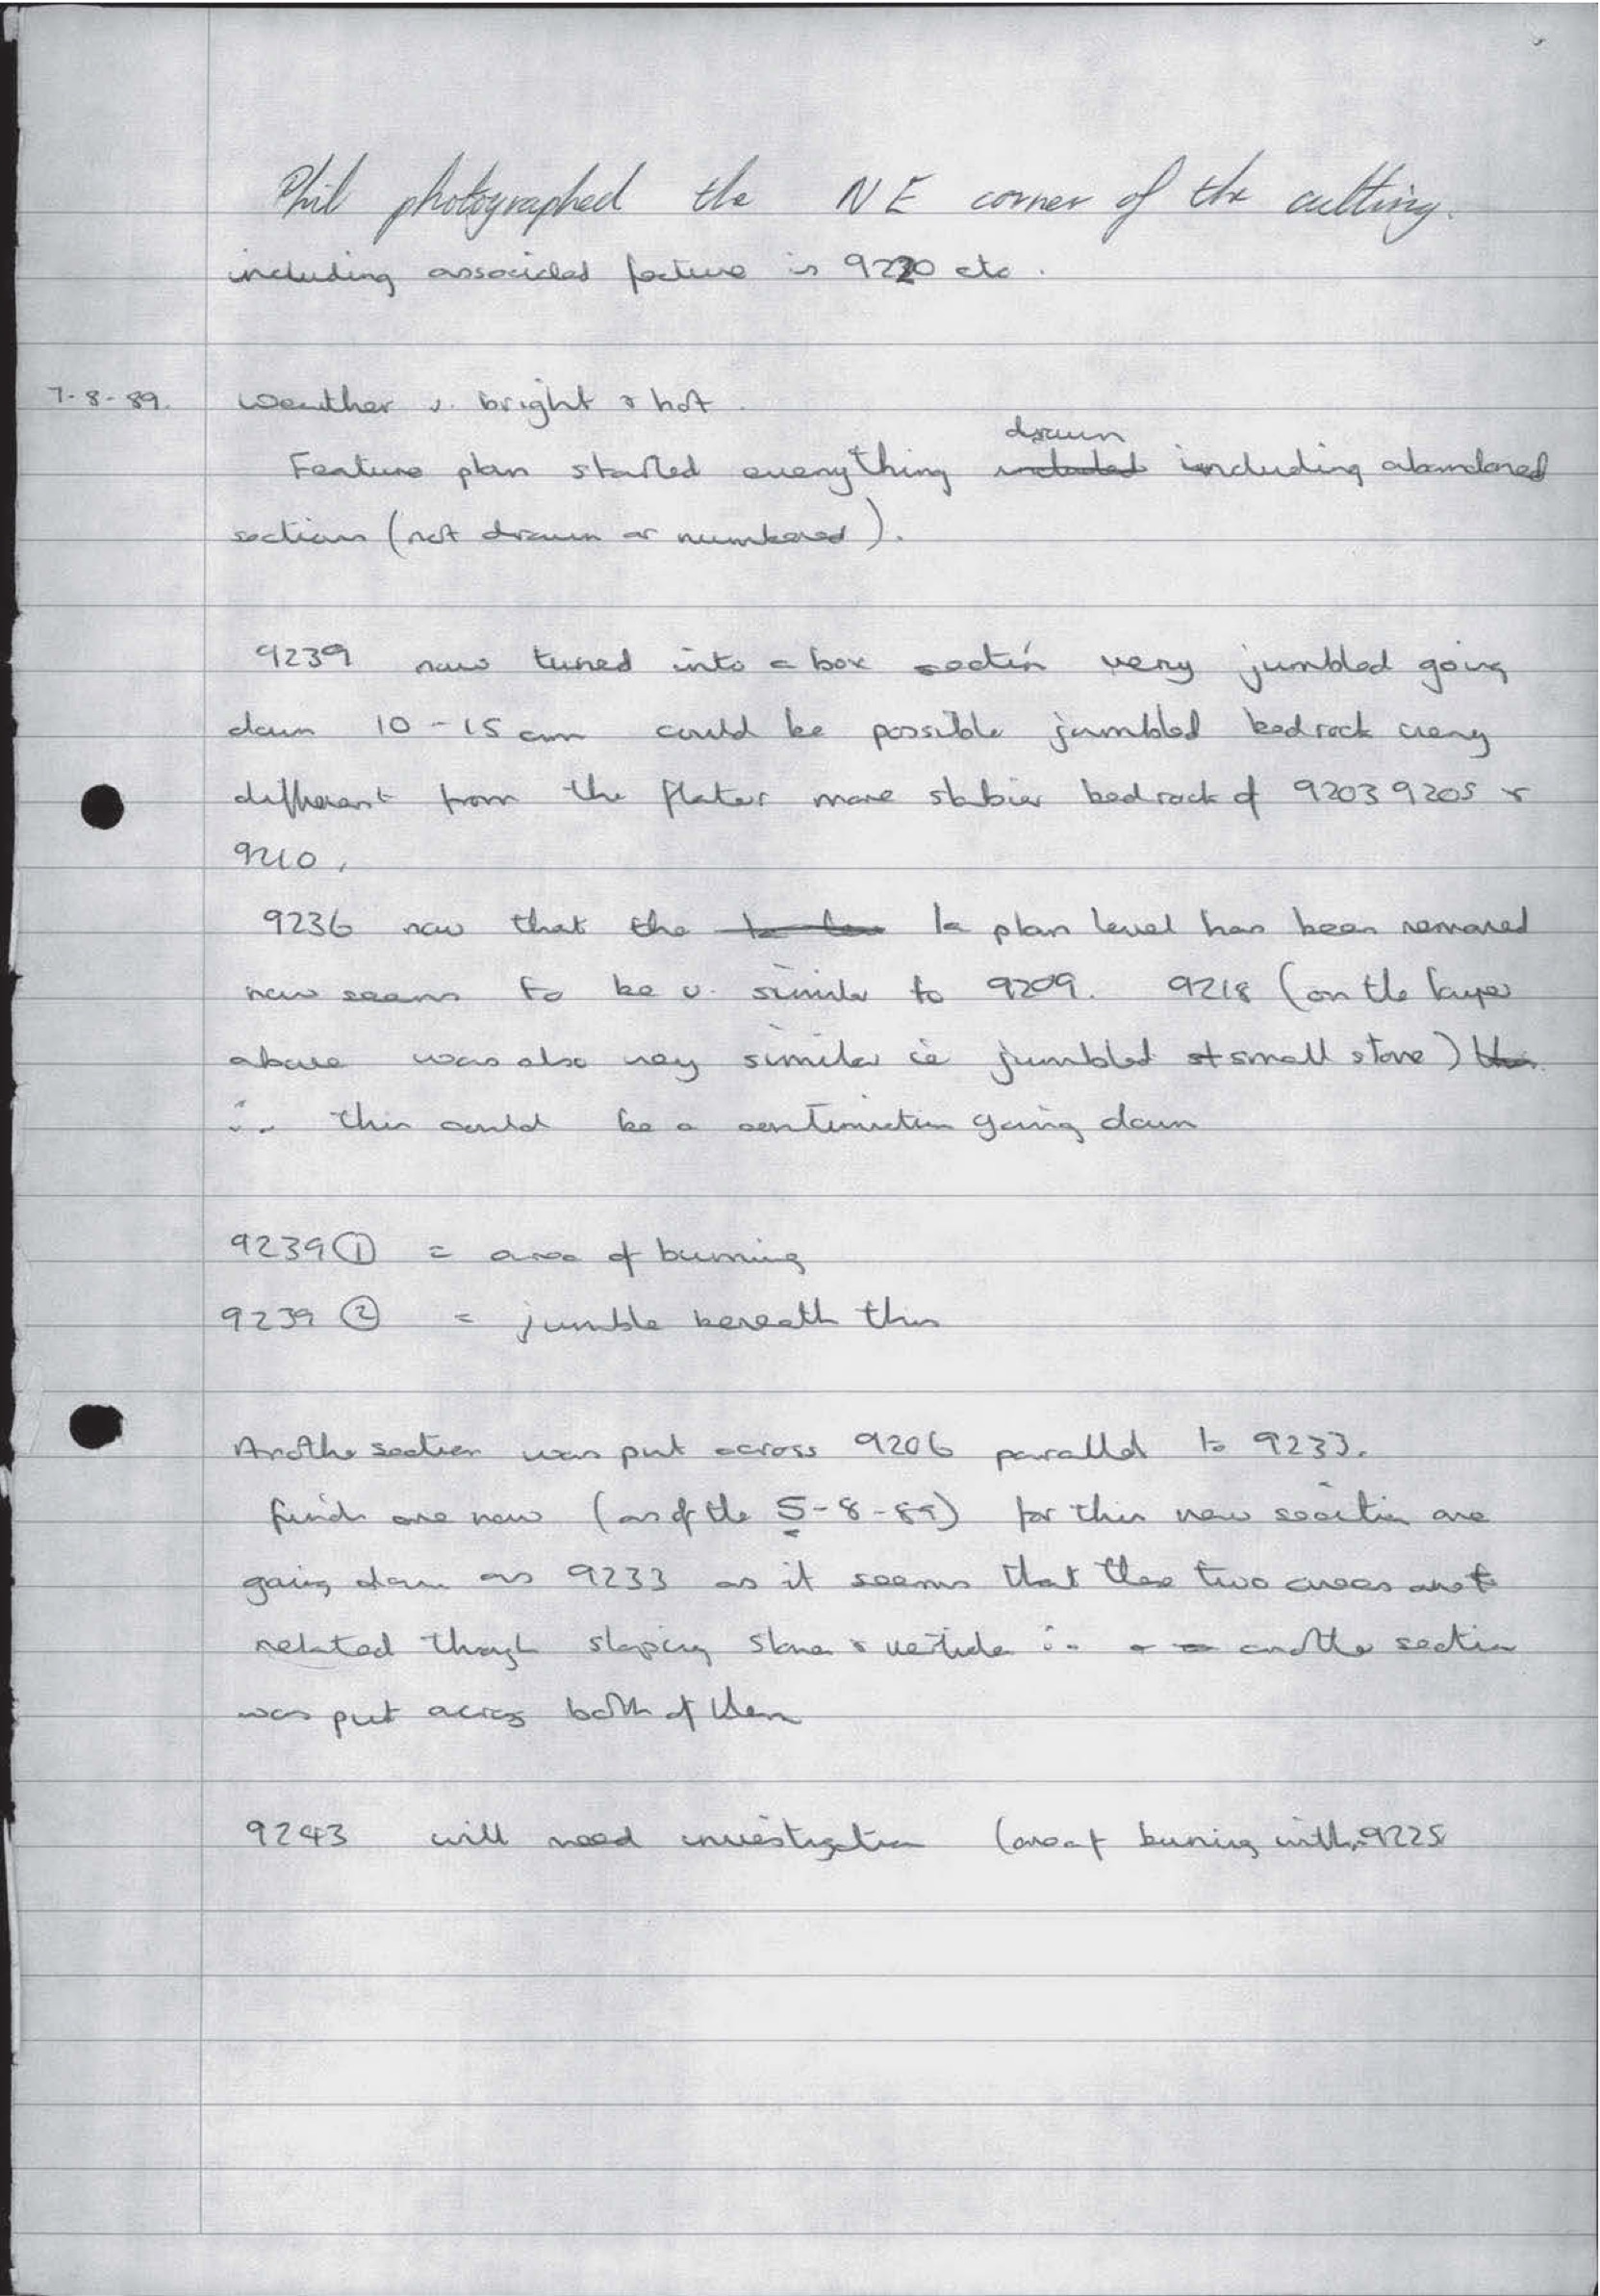 Phil photographed the NE corner of the cutting.
including associated feature is 9220 etc.
7-8-89. Weather v. bright & hot.
drawn
Feature plan started everything included including abandoned
sections (not drawn or numbered).
9239 now turned into a box section very jumbled going
down 10-15 cm could be possible jumbled bedrock
different from the flater more bedrock of 9203 9205 &
9210.
9236 now that the 1a plan level has been removed
now seems to be v. similar to 9209. 9218 (on the layer
above was also very similar ie jumbled small stone)
∴ this could be a continuation going down
9239 ① = area of burning
9239 ② = jumble beneath this
Another section was put across 9206 parallel to 9233.
finds are now (as of the 5-8-89) for this new section are
going down as 9233 as it seems that these two areas are
related though sloping stone & ∴ another section
was put across both of them
9243 will need investigation (area of burning within 9225